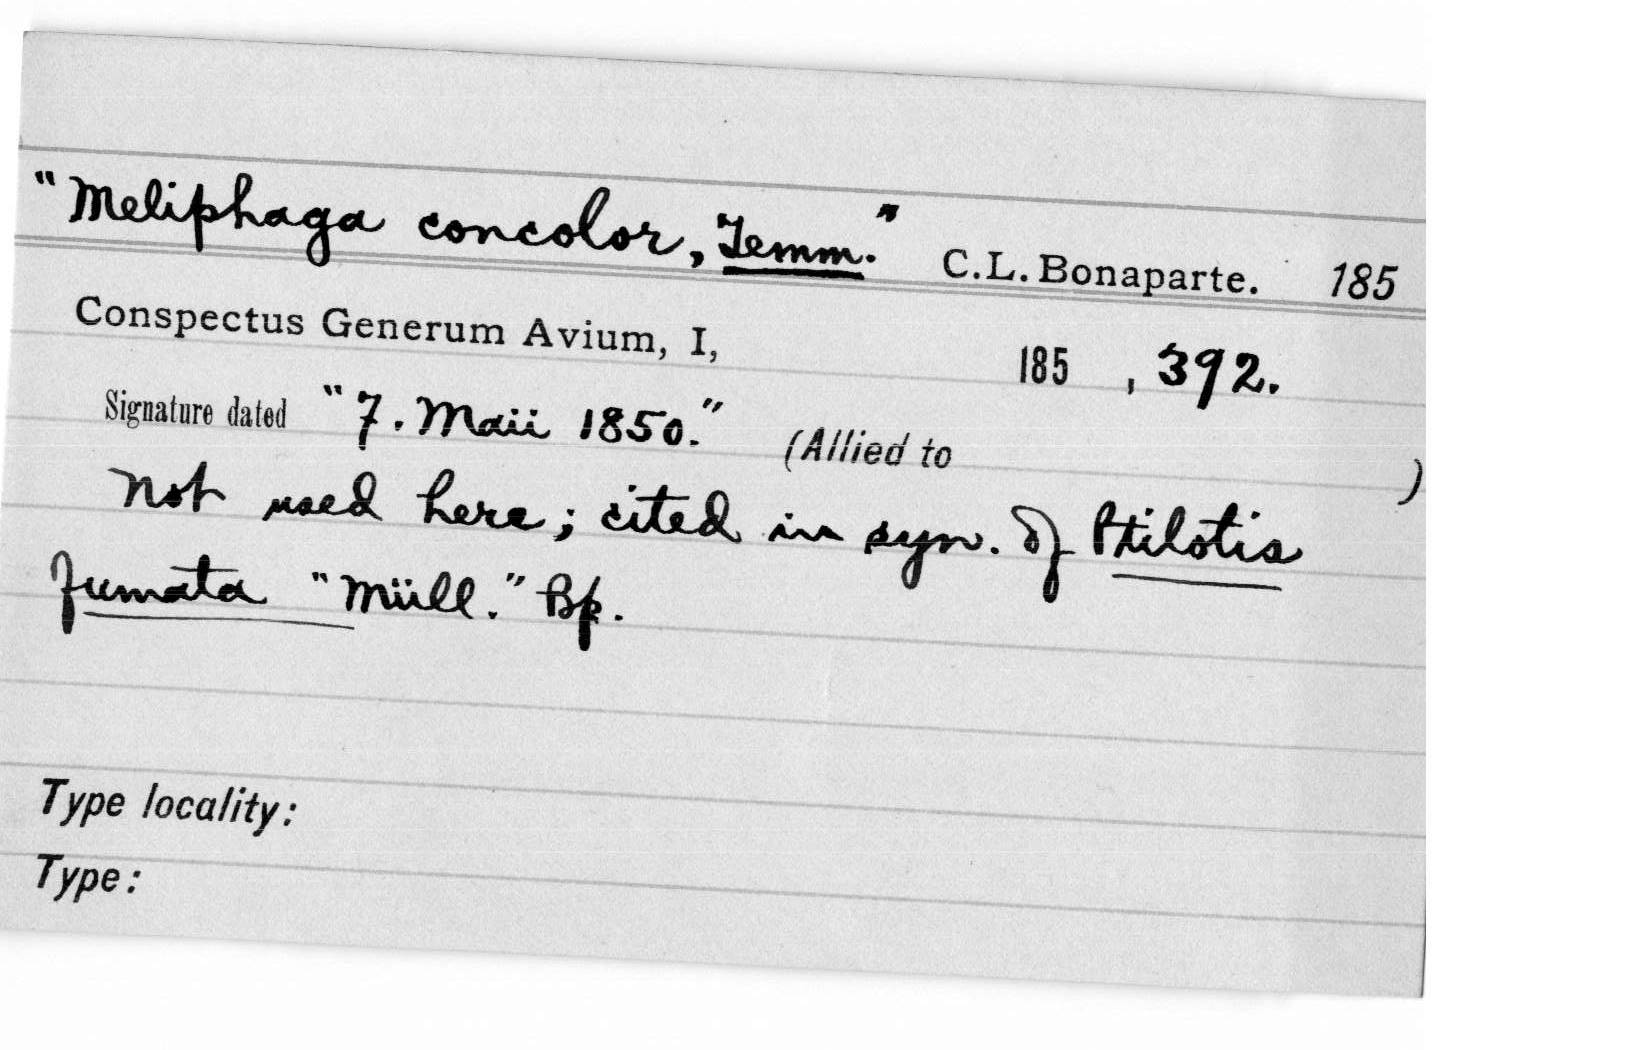 "Meliphaga concolor, Temm." C.L. Bonaparte. 185
Conspectus Generum Avium, I, 185 , 392.
Signature dated "7. Maii 1850." (Allied to )
Not used here; cited in syn. of Ptilotis
fumata "Müll." Bp.
Type locality:
Type: